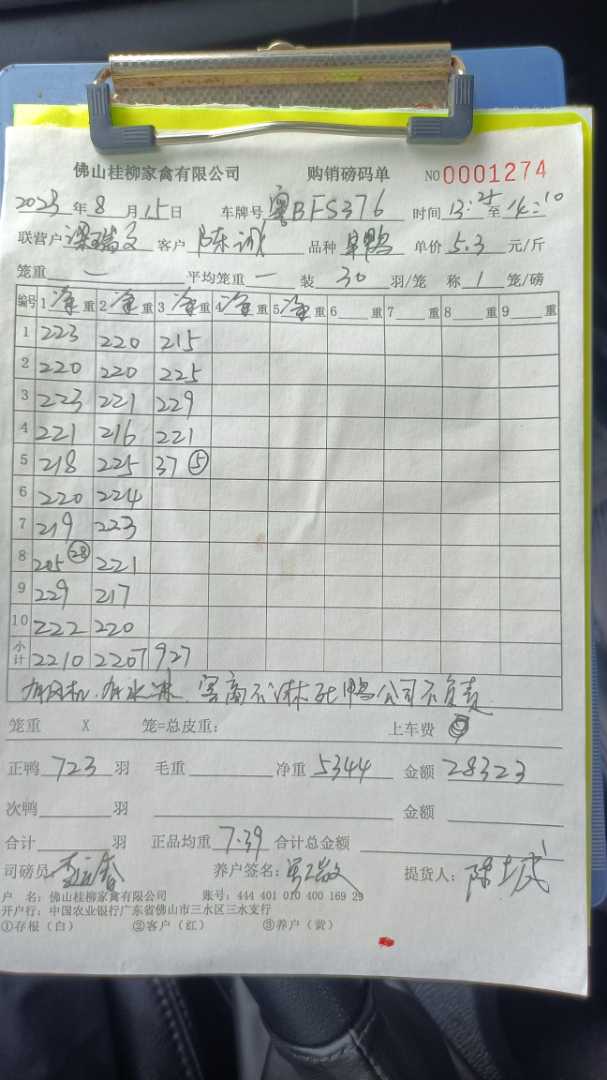 佛山桂柳家禽有限公司 购销磅码单 NO 0001274
2023年8月15日 车牌号 粤BFS376 时间 13:25至14:10
联营户 梁瑞文 客户 陈诚 品种 单价 5.3 元/斤
笼重 一 平均笼重 一 装 30 羽/笼 称 1 笼/磅
编号 1 净 重 2 净 重 3 净 重 4 净 重 5 净 重 6 重 7 重 8 重 9 重
1 223 220 215
2 220 220 225
3 223 221 229
4 221 216 221
5 218 225 37 ⑤
6 220 224
7 219 223
8 205 ㉘ 221
9 229 217
10 222 220
小计 2210 2207 927
有风机.有水淋.客商不淋死鸭公司不负责
笼重 X 笼=总皮重: 上车费
正鸭 723 羽 毛重 净重 5344 金额 28323
次鸭 羽 金额
合计 羽 正品均重 7.39 合计总金额
司磅员: 养户签名: 提货人:
户 名: 佛山桂柳家禽有限公司 账号: 444 401 010 400 169 29
开户行: 中国农业银行广东省佛山市三水区三水支行
①存根(白) ②客户(红) ③养户(黄)